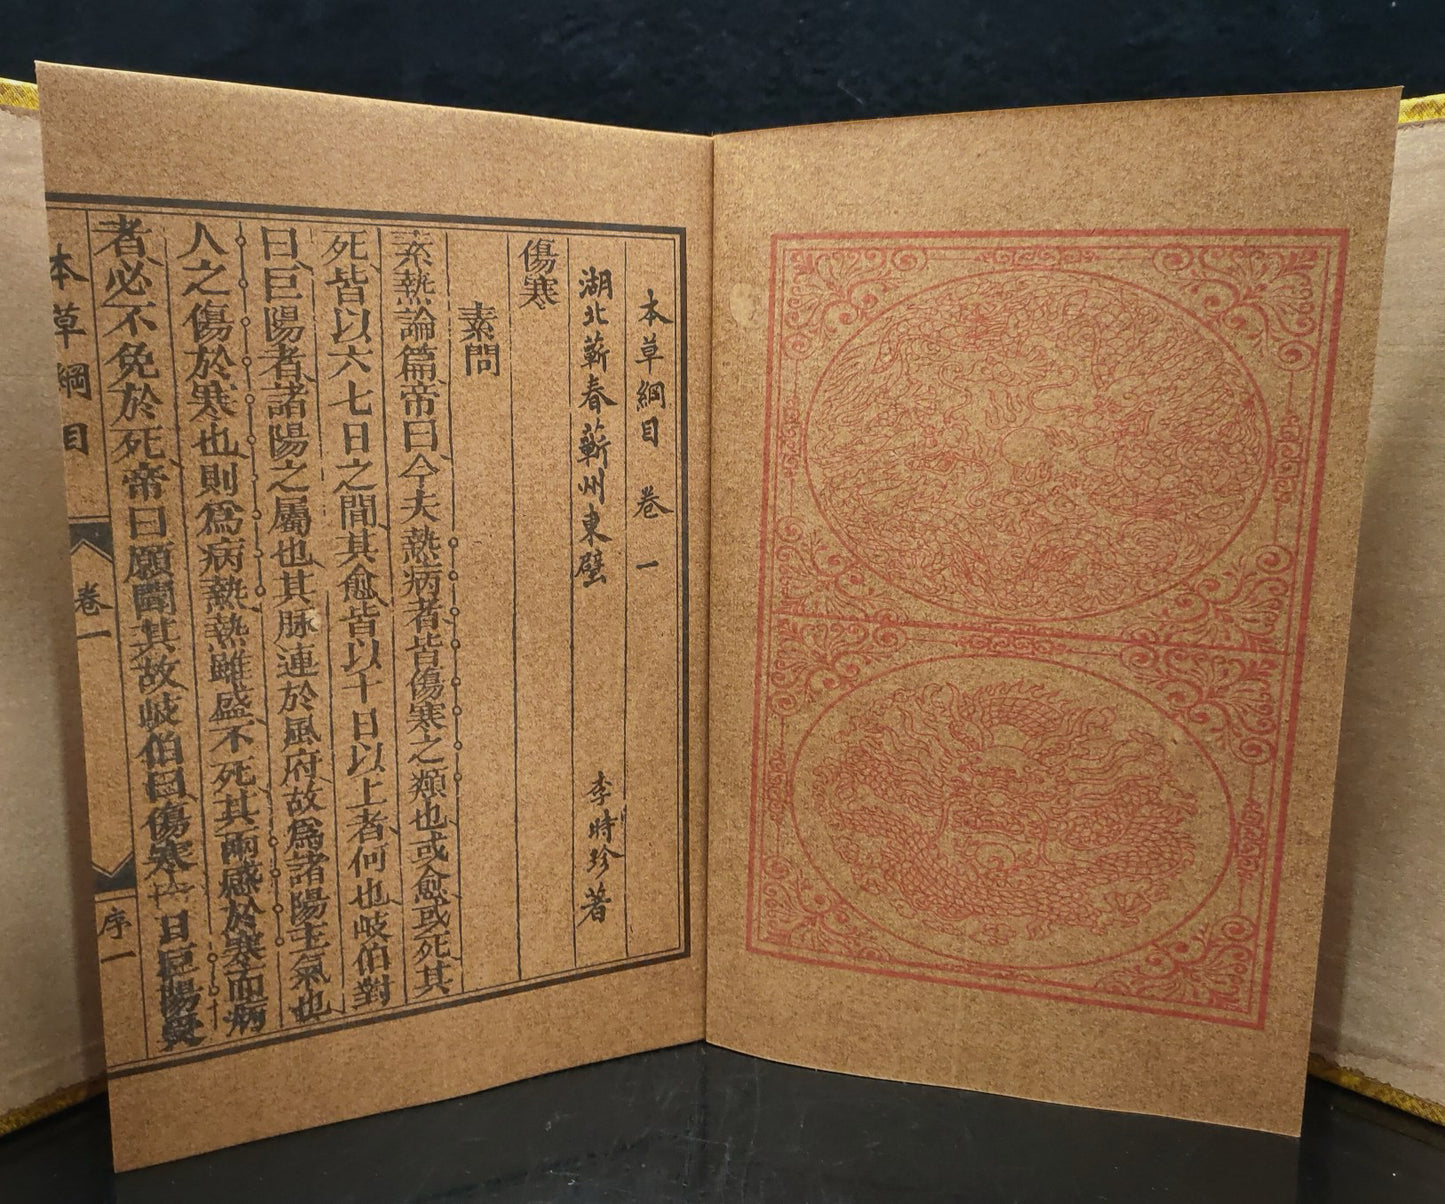 本草綱目 卷一
湖北蘄春蘄州東壁 李時珍著
傷寒
素問
熱論篇帝曰今夫熱病者皆傷寒之類也或愈或死其
死皆以六七日之間其愈皆以十日以上者何也岐伯對
曰巨陽者諸陽之屬也其脉連於風府故為諸陽主氣也
人之傷於寒也則為病熱熱雖盛不死其兩感於寒而病
者必不免於死帝曰願聞其故岐伯曰傷寒一日巨陽受
本草綱目
卷一
序一